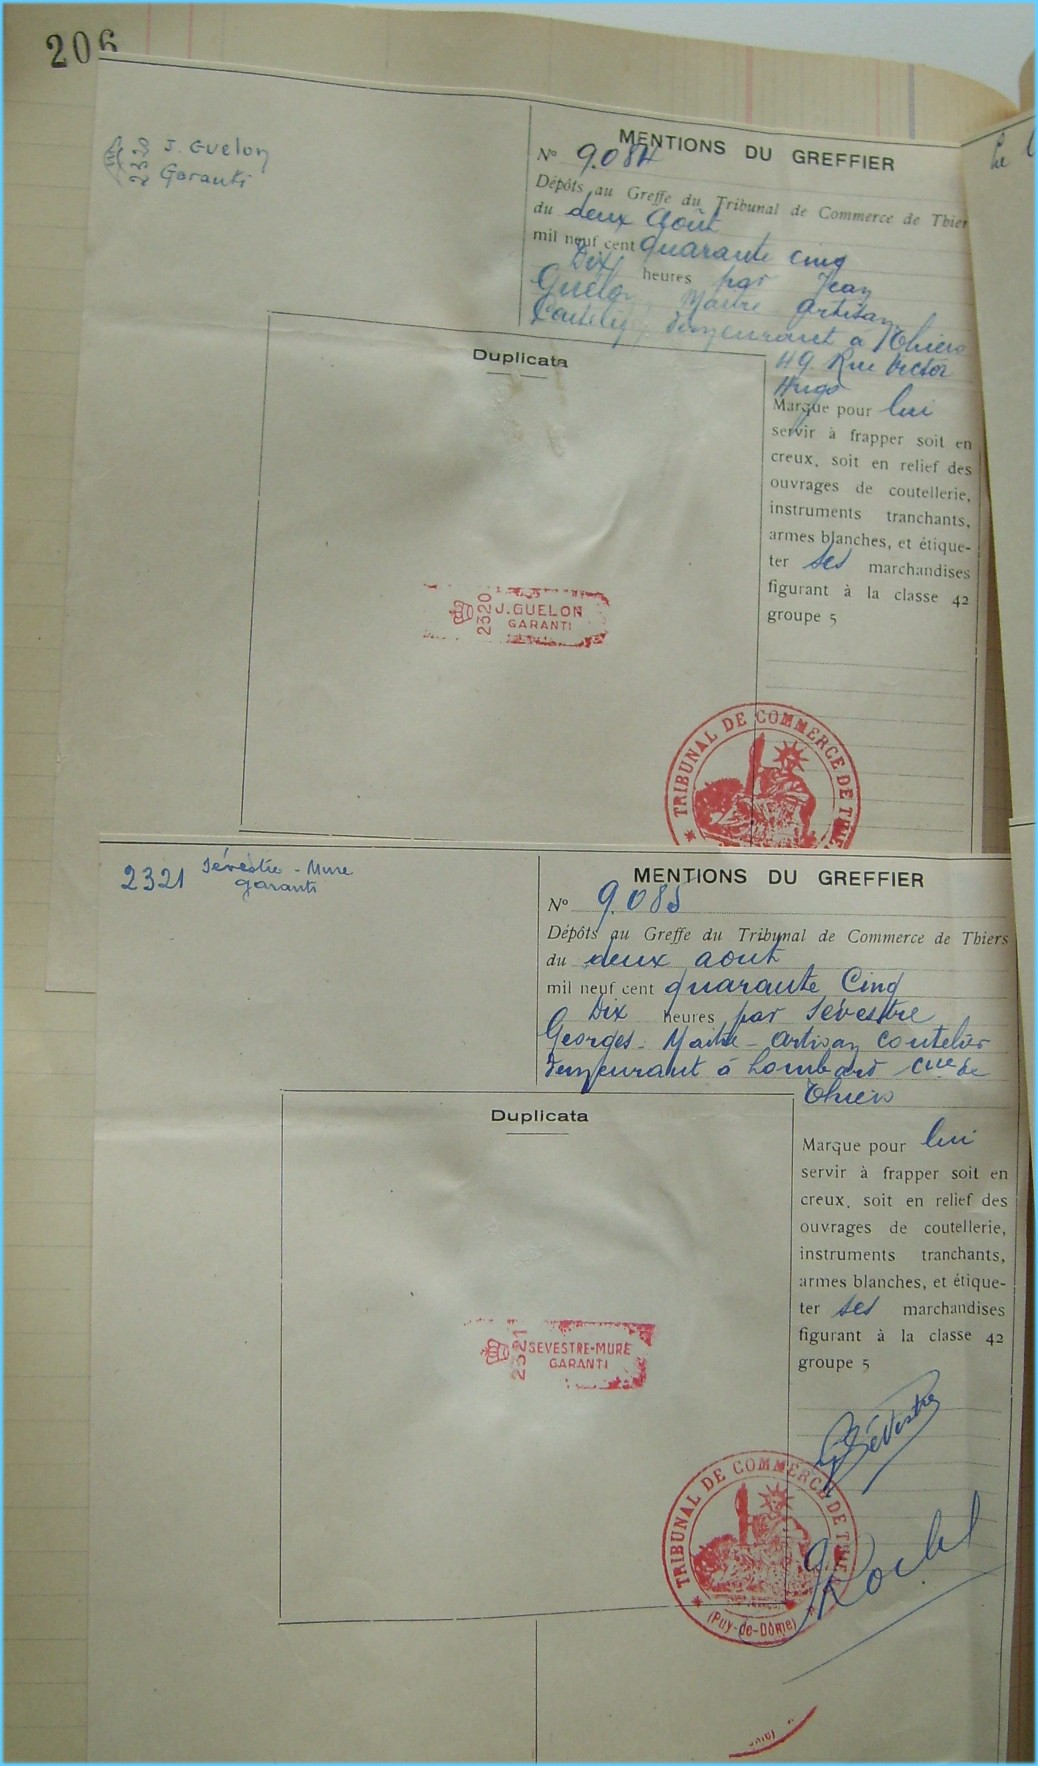 206
2320 J. Guelon
Garanti
MENTIONS DU GREFFIER
N° 9.084
Dépôts au Greffe du Tribunal de Commerce de Thier
du deux Août
mil neuf cent quarante cinq
Dix heures par Jean
Guelon Maitre Artisan
Coutelier demeurant à Thiers
49 Rue Victor
Hugo
Marque pour lui
servir à frapper soit en
creux, soit en relief des
ouvrages de coutellerie,
instruments tranchants,
armes blanches, et étique-
ter ses marchandises
figurant à la classe 42
groupe 5
Duplicata
2320 J. GUELON
GARANTI
TRIBUNAL DE COMMERCE DE THI
2321 Sévestre - Mure
garanti
MENTIONS DU GREFFIER
N° 9.085
Dépôts au Greffe du Tribunal de Commerce de Thiers
du deux aout
mil neuf cent quarante Cinq
Dix heures par Sévestre
Georges - Maitre - artisan coutelier
demeurant à Lombard cne de
Thiers
Marque pour lui
servir à frapper soit en
creux, soit en relief des
ouvrages de coutellerie,
instruments tranchants,
armes blanches, et étique-
ter ses marchandises
figurant à la classe 42
groupe 5
Duplicata
2321 SEVESTRE-MURE
GARANTI
GSévestre
TRIBUNAL DE COMMERCE DE THI
(Puy-de-Dôme)